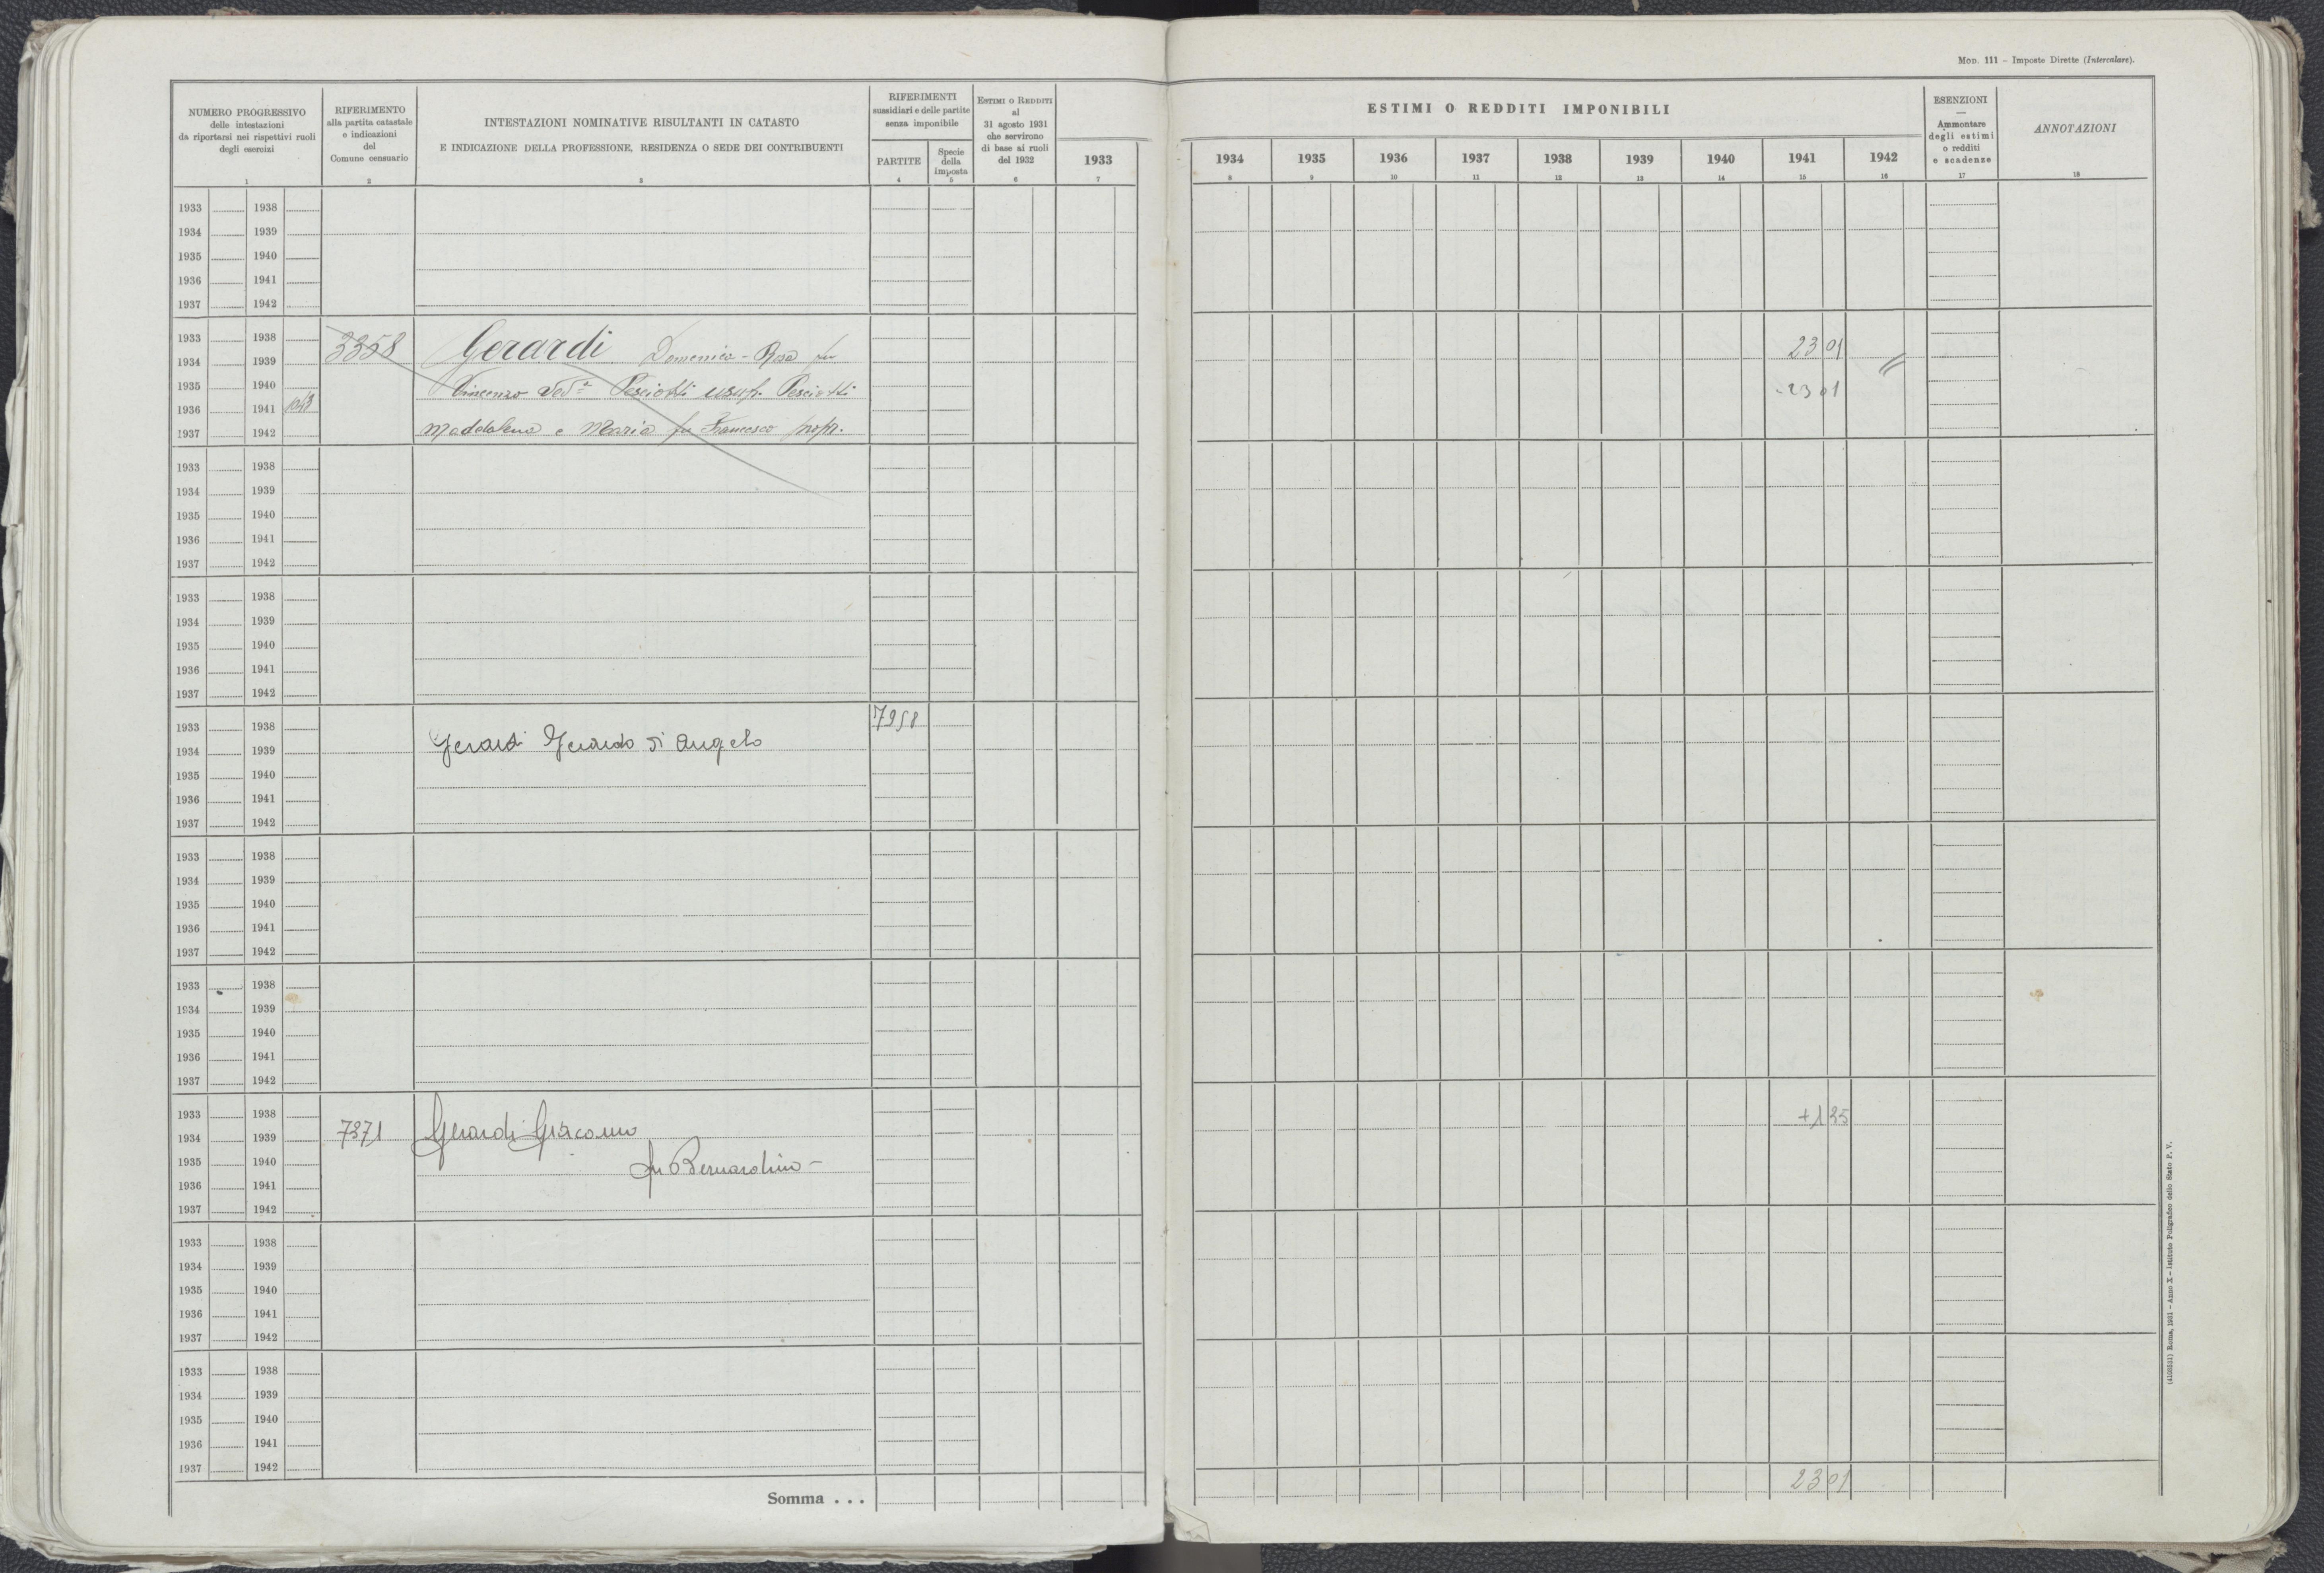 Mod. 111 – Imposte Dirette (Intercalare).
NUMERO PROGRESSIVO
delle intestazioni
da riportarsi nei rispettivi ruoli
degli esercizi
1
RIFERIMENTO
alla partita catastale
e indicazioni
del
Comune censuario
2
INTESTAZIONI NOMINATIVE RISULTANTI IN CATASTO
E INDICAZIONE DELLA PROFESSIONE, RESIDENZA O SEDE DEI CONTRIBUENTI
3
RIFERIMENTI
sussidiari e delle partite
senza imponibile
PARTITE
4
Specie
della
imposta
5
Estimi o Redditi
al
31 agosto 1931
che servirono
di base ai ruoli
del 1932
6
ESTIMI O REDDITI IMPONIBILI
1933 1934 1935 1936 1937 1938 1939 1940 1941 1942
7 8 9 10 11 12 13 14 15 16
ESENZIONI
—
Ammontare
degli estimi
o redditi
e scadenze
17
ANNOTAZIONI
18
1933 1938
1934 1939
1935 1940
1936 1941
1937 1942
1933 1938
1934 1939 3358 Gerardi Domenica - Rosa fu 23 01
1935 1940 Vincenzo Ved.a Pesciotti usuf. Pesciotti -23 01
1936 1941
1937 1942 Maddalena e Maria fu Francesco propr.
1933 1938
1934 1939
1935 1940
1936 1941
1937 1942
1933 1938
1934 1939
1935 1940
1936 1941
1937 1942
1933 1938 7958
1934 1939 Gerardi Gerardo di Angelo
1935 1940
1936 1941
1937 1942
1933 1938
1934 1939
1935 1940
1936 1941
1937 1942
1933 1938
1934 1939
1935 1940
1936 1941
1937 1942
1933 1938 +1 35
1934 1939 7371 Gerardi Giacomo
1935 1940 fu Bernardino –
1936 1941
1937 1942
1933 1938
1934 1939
1935 1940
1936 1941
1937 1942
1933 1938
1934 1939
1935 1940
1936 1941
1937 1942
Somma . . . 23 01
(4100531) Roma, 1931 – Anno X – Istituto Poligrafico dello Stato P. V.